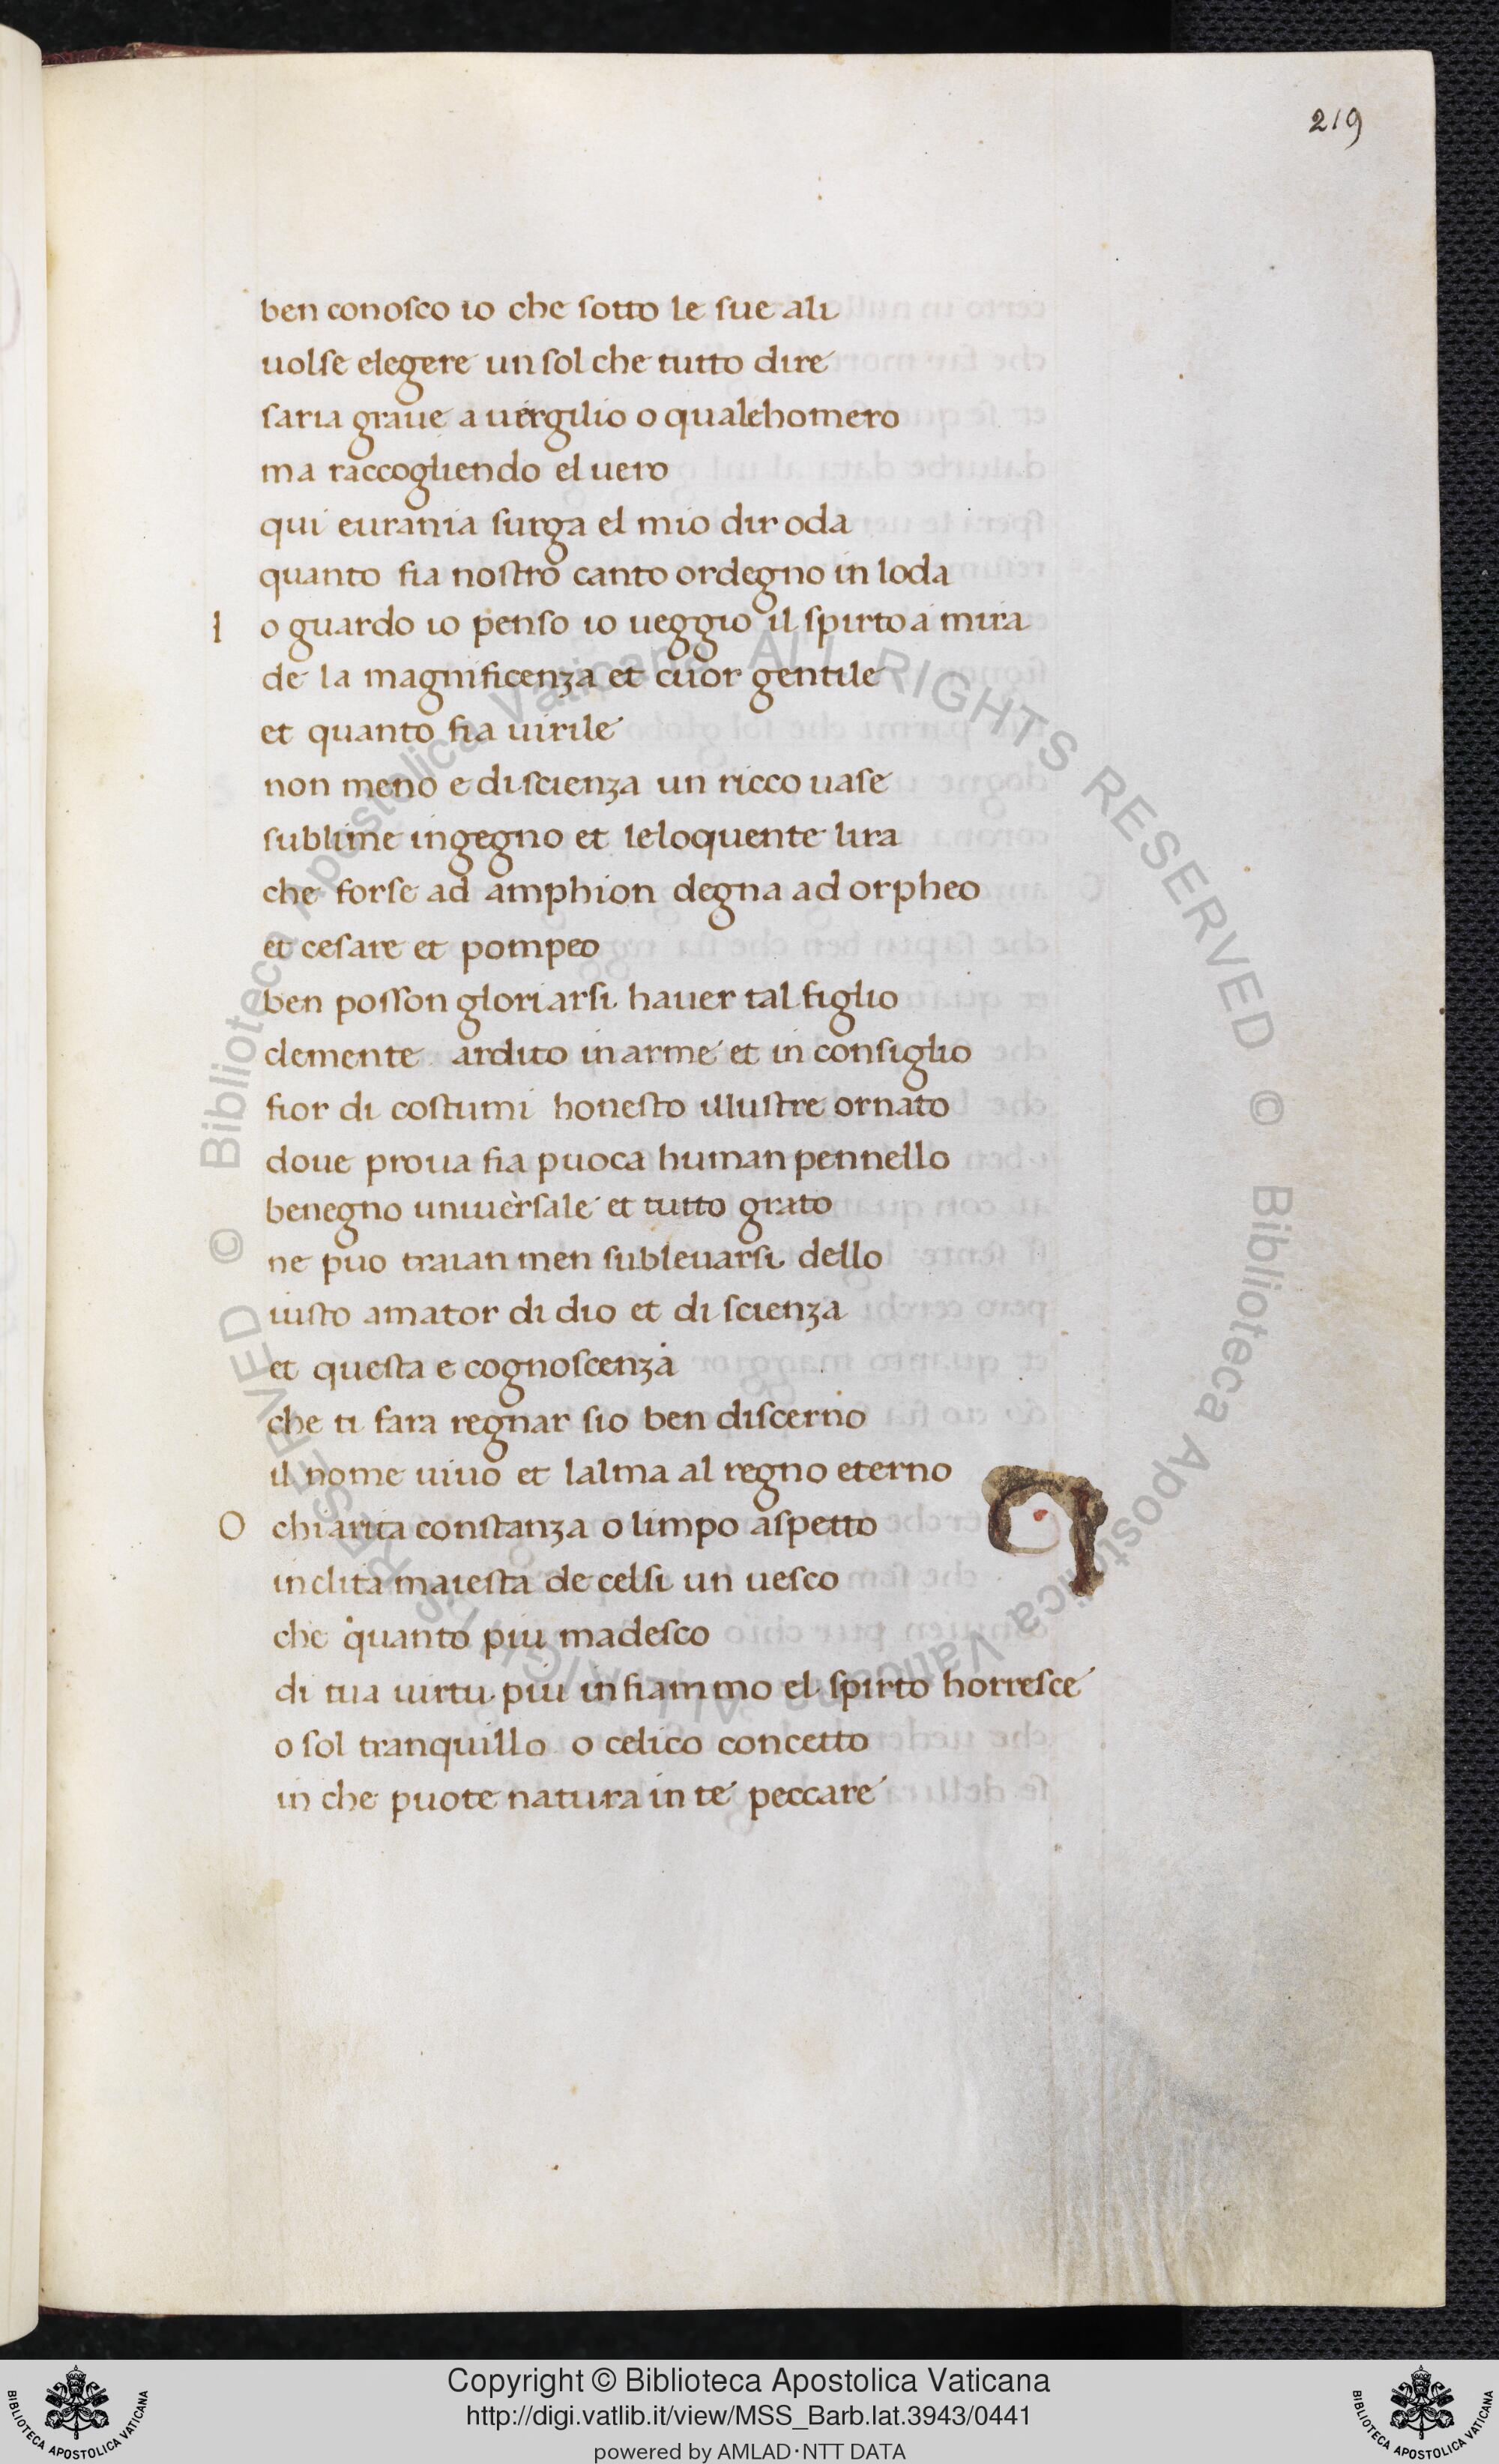 219
ben conosco io che sotto le sue ali
uolse elegere un sol che tutto dire
saria graue a uergilio o qualehomero
ma raccogliendo el uero
qui eurania surga el mio dir oda
quanto fia nostro canto ordegno in loda
I o guardo io penso io ueggio il spirto a mira
de la magnificenza et cuor gentile
et quanto fia uirile
non meno e di scienza un ricco uase
sublime ingegno et leloquente lira
che forse ad amphion degna ad orpheo
et cesare et pompeo
ben posson gloriarsi hauer tal figlio
clemente ardito in arme et in consiglio
fior di costumi honesto illustre ornato
doue proua fia puoca human pennello
benegno uniuersale et tutto grato
ne puo traian men subleuarsi dello
iusto amator di dio et di scienza
et questa e cognoscenza
che ti fara regnar sio ben discerno
il nome uiuo et lalma al regno eterno
O chiarita constanza o limpo aspetto
inclita maiesta de celsi un uesco
che quanto piu madesco
di tua uirtu piu infiammo el spirto horresce
o sol tranquillo o celico concetto
in che puote natura in te peccare
© Biblioteca Apostolica Vaticana ALL RIGHTS RESERVED © Biblioteca Apostolica Vaticana ALL RIGHTS RESERVED
BIBLIOTECA APOSTOLICA VATICANA
Copyright © Biblioteca Apostolica Vaticana
http://digi.vatlib.it/view/MSS_Barb.lat.3943/0441
powered by AMLAD·NTT DATA
BIBLIOTECA APOSTOLICA VATICANA